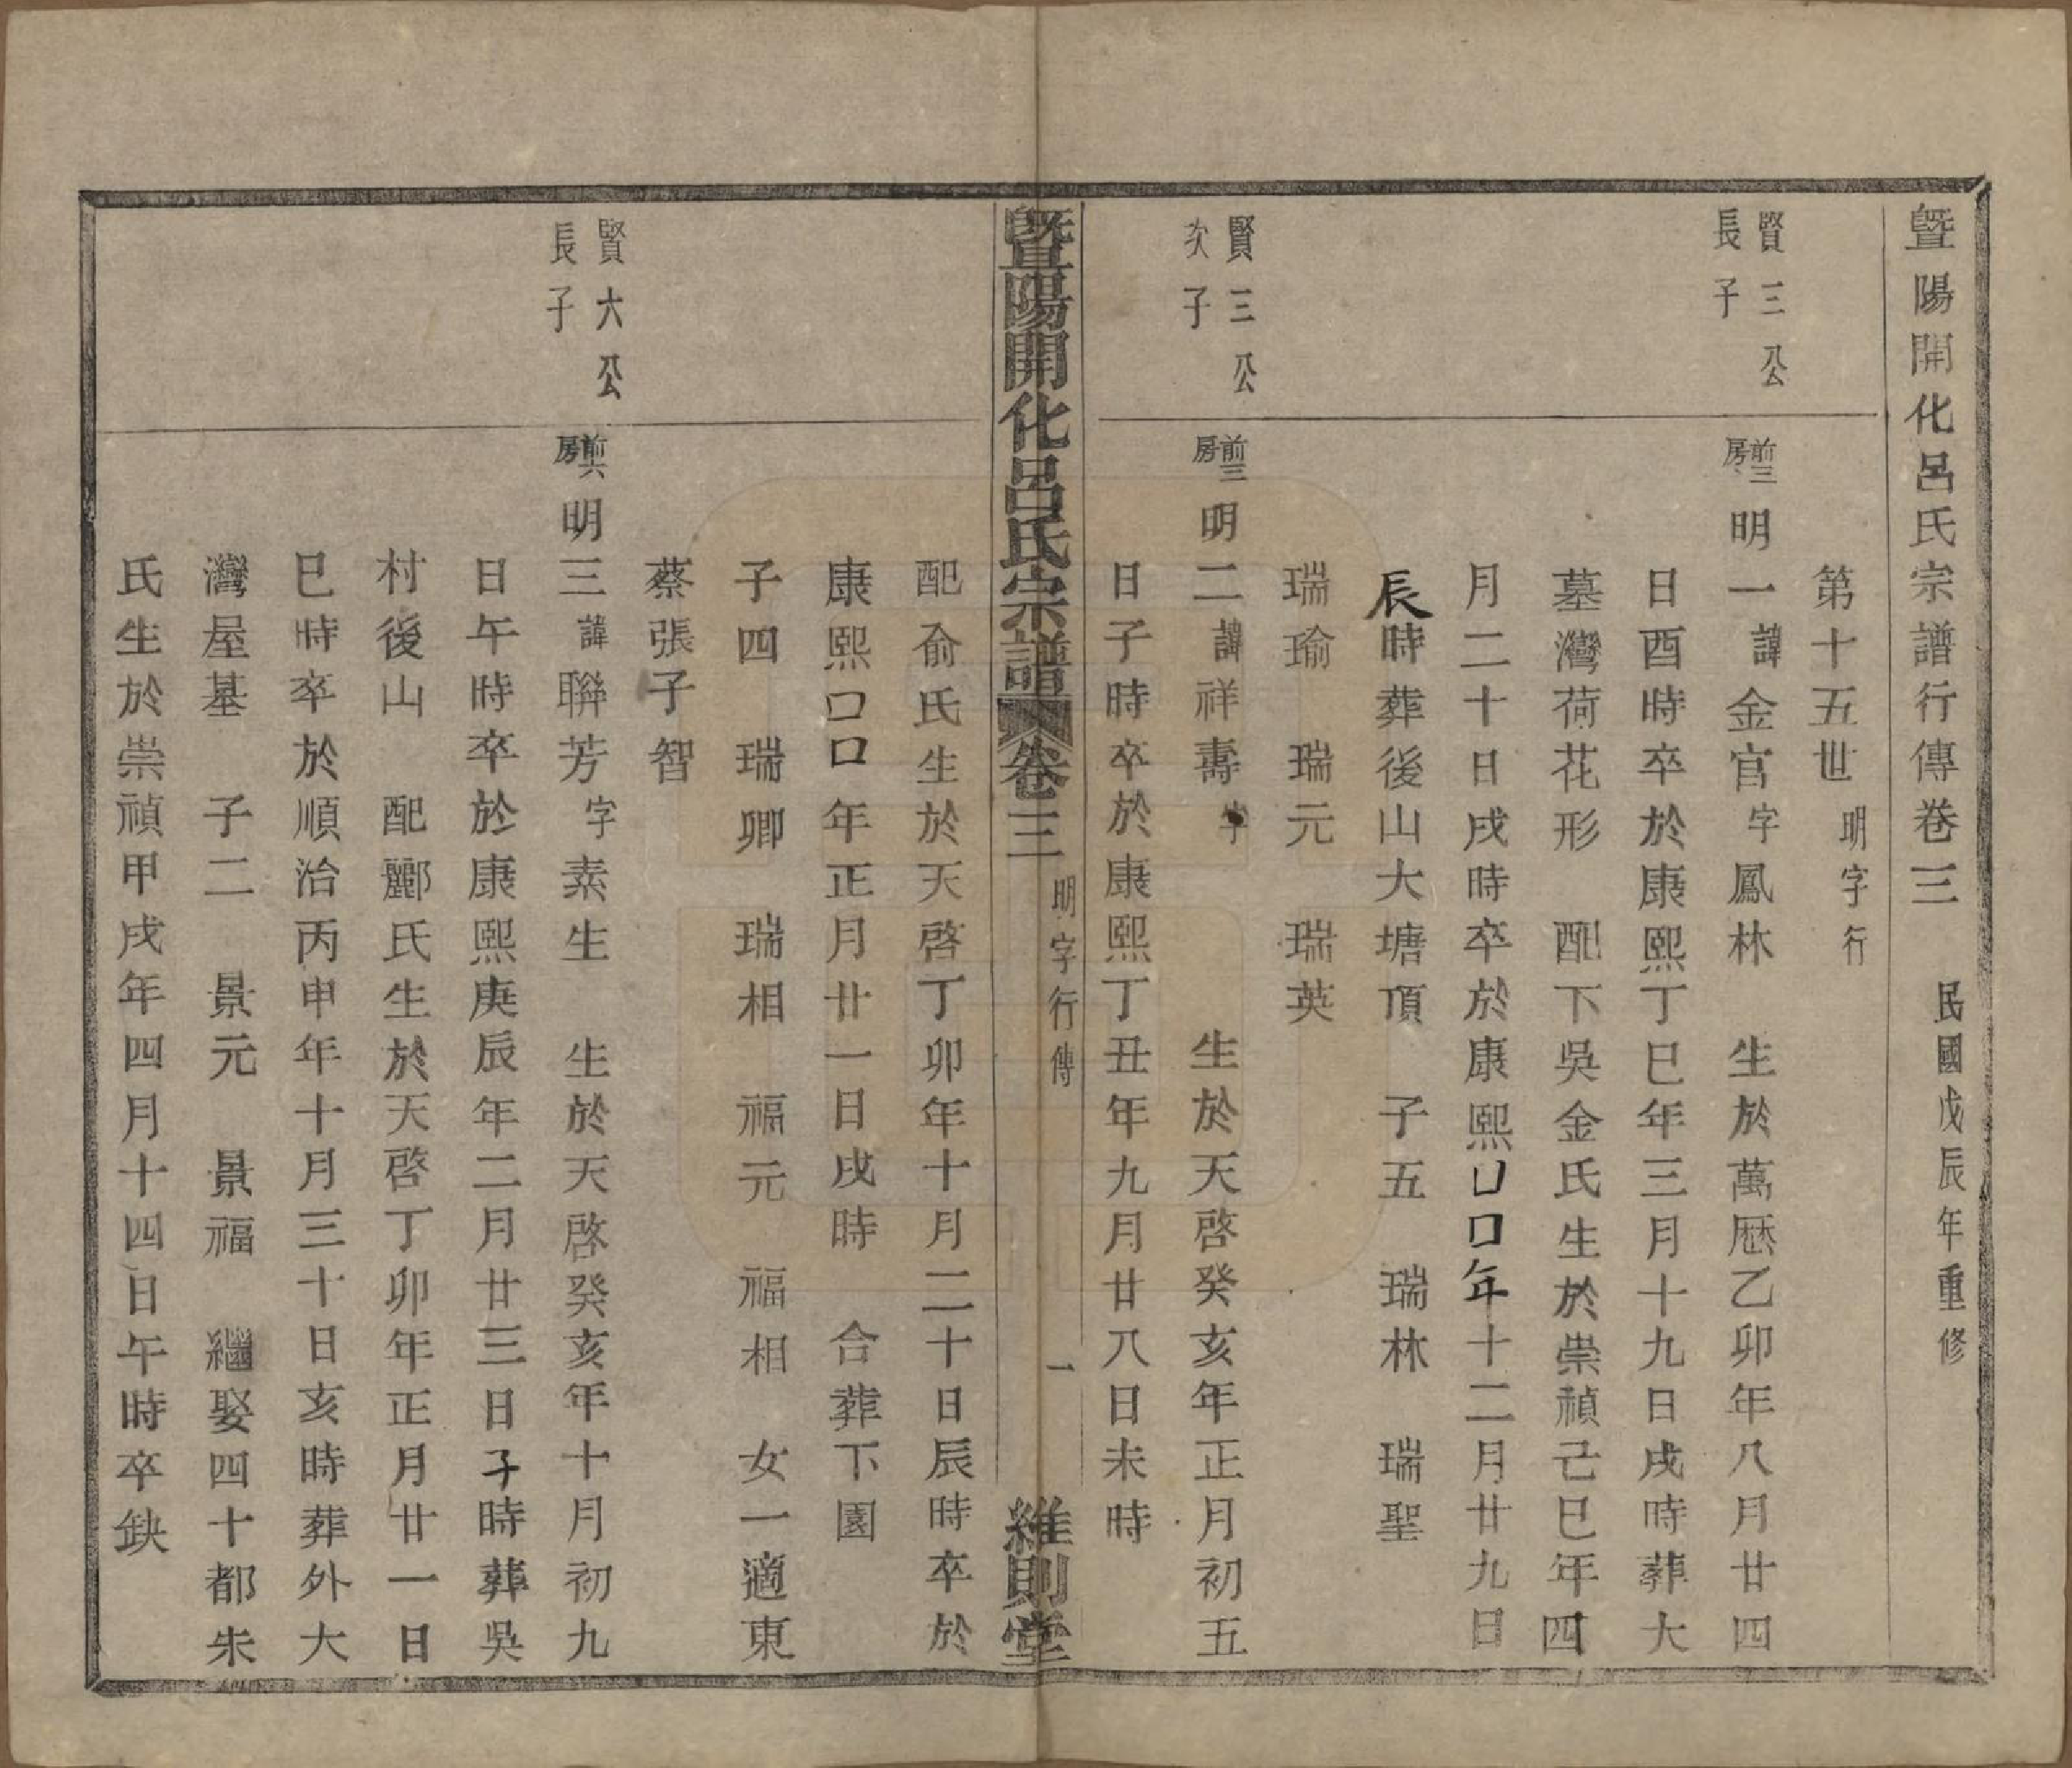 暨陽開化呂氏宗譜行傳卷三 民國戊辰年重修
第十五世 明字行
賢三公
長子
前三房 明一 諱金官 字鳳林 生於萬厯乙卯年八月廿四
日酉時卒於康熙丁巳年三月十九日戌時葬大
墓灣荷花形 配下吳金氏生於崇禎己巳年四
月二十日戌時卒於康熙口口年十二月廿九日
辰時葬後山大塘頂 子五 瑞林 瑞聖
瑞瑜 瑞元 瑞英
賢三公
次子
前三房 明二 諱祥壽 字 生於天啓癸亥年正月初五
日子時卒於康熙丁丑年九月廿八日未時
暨陽開化呂氏宗譜 卷三 明字行傳 一 維則堂
配俞氏生於天啓丁卯年十月二十日辰時卒於
康熙口口年正月廿一日戌時 合葬下園
子四 瑞卿 瑞相 福元 福相 女一適東
蔡張子智
賢大公
長子
前六房 明三 諱聯芳 字素生 生於天啓癸亥年十月初九
日午時卒於康熙庚辰年二月廿三日子時葬吳
村後山 配酈氏生於天啓丁卯年正月廿一日
巳時卒於順治丙申年十月三十日亥時葬外大
灣屋基 子二 景元 景福 繼娶四十都朱
氏生於崇禎甲戌年四月十四日午時卒缺